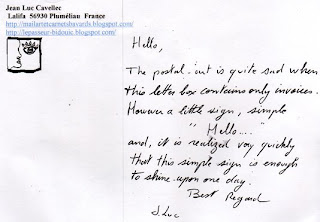 Jean Luc Cavellec
Lalifa 56930 Pluméliau France
http://mailartetcarnetsbavards.blogspot.com/
http://lepasseur-bidouic.blogspot.com/
Hello,
The postal art is quite sad when
this letter box contains only invoices.
However a little sign, simple
" Hello.... "
and, it is realized very quickly
that this simple sign is enough
to shine upon one day.
Best Regard
J Luc